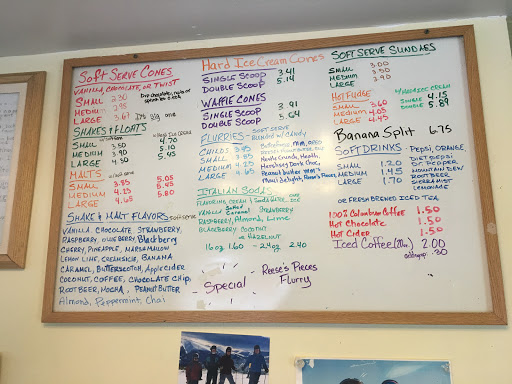 Soft Serve Cones
Vanilla, Chocolate, or Twist
Small 2.30
Medium 2.95
Large 3.67 It's a big one
Dip chocolate, nuts or sprinkles
Shakes & Floats
w/ Hard Ice Cream
Small 3.50 4.70
Medium 3.90 5.10
Large 4.30 5.45
Malts
Small 3.85 5.05
Medium 4.25 5.45
Large 4.65 5.80
Shake & Malt Flavors soft serve
Vanilla, Chocolate, Strawberry,
Raspberry, Blueberry, Blackberry
Cherry, Pineapple, Marshmallow
Lemon Lime, Creamsicle, Banana
Caramel, Butterscotch, Apple Cider
Coconut, Coffee, Chocolate Chip,
Root Beer, Mocha, Peanut Butter
Almond, Peppermint, Chai
Hard Ice Cream Cones
Single Scoop 3.41
Double Scoop 5.14
Waffle Cones
Single Scoop 3.91
Double Scoop 5.64
Flurries - Soft Serve
Blended w/ Candy
Childs 3.45
Small 3.85
Medium 4.25
Large 4.65
Butterfinger, M&M, Oreo
Nestle Crunch, Heath,
Hershey Dark Choc,
Peanut Butter M&M's
Plain Delight, Reese's Pieces
Italian Sodas
Flavoring, Cream & Soda Water over ice
Vanilla, Salted Caramel, Strawberry
Raspberry, Almond, Lime
Blackberry, Coconut
or Hazelnut
16oz 1.60 - 24oz 2.40
Special Reese's Pieces
Flurry
Soft Serve Sundaes
Small 3.00
Medium 3.50
Large 3.90
Hot Fudge
w/ Hard Ice Cream
Small 3.60
Medium 4.05
Large 4.45
Single 4.15
Double 5.89
Banana Split 6.75
Soft Drinks - Pepsi, Orange,
Small 1.20
Medium 1.45
Large 1.70
Diet Pepsi
Dr. Pepper
Mountain Dew
Root Beer
Sierra Mist
Lemonade
or Fresh Brewed Iced Tea
100% Colombian Coffee 1.50
Hot Chocolate 1.50
Hot Cider 1.50
Iced Coffee (20oz) 2.00
add syrup .30